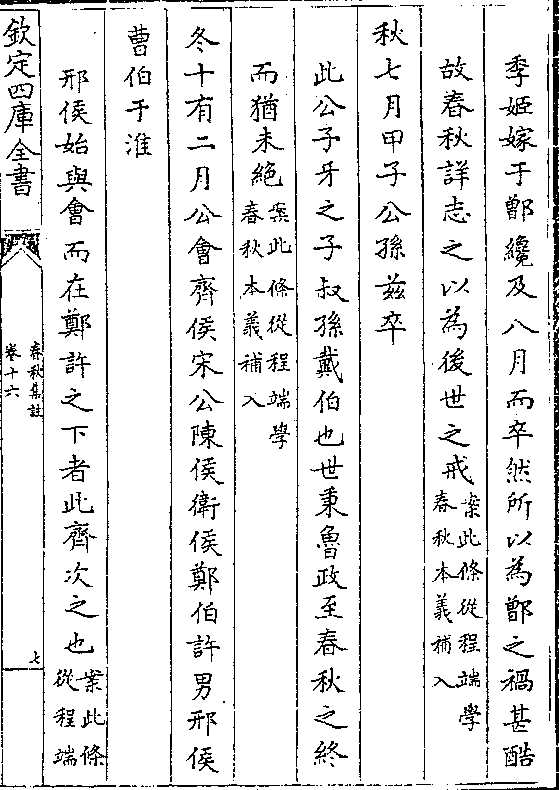 季姬嫁于鄫纔及八月而卒然所以為鄫之禍甚酷
故春秋詳志之以為後世之戒案此條從程端學
春秋本義補入
秋七月甲子公孫茲卒
此公子牙之子叔孫戴伯也世秉魯政至春秋之終
而猶未絕案此條從程端學
春秋本義補入
冬十有二月公會齊侯宋公陳侯衛侯鄭伯許男邢侯
曹伯于淮
邢侯始與會而在鄭許之下者此齊次之也案此條
從程端
欽定四庫全書
春秋集註
卷十六
七